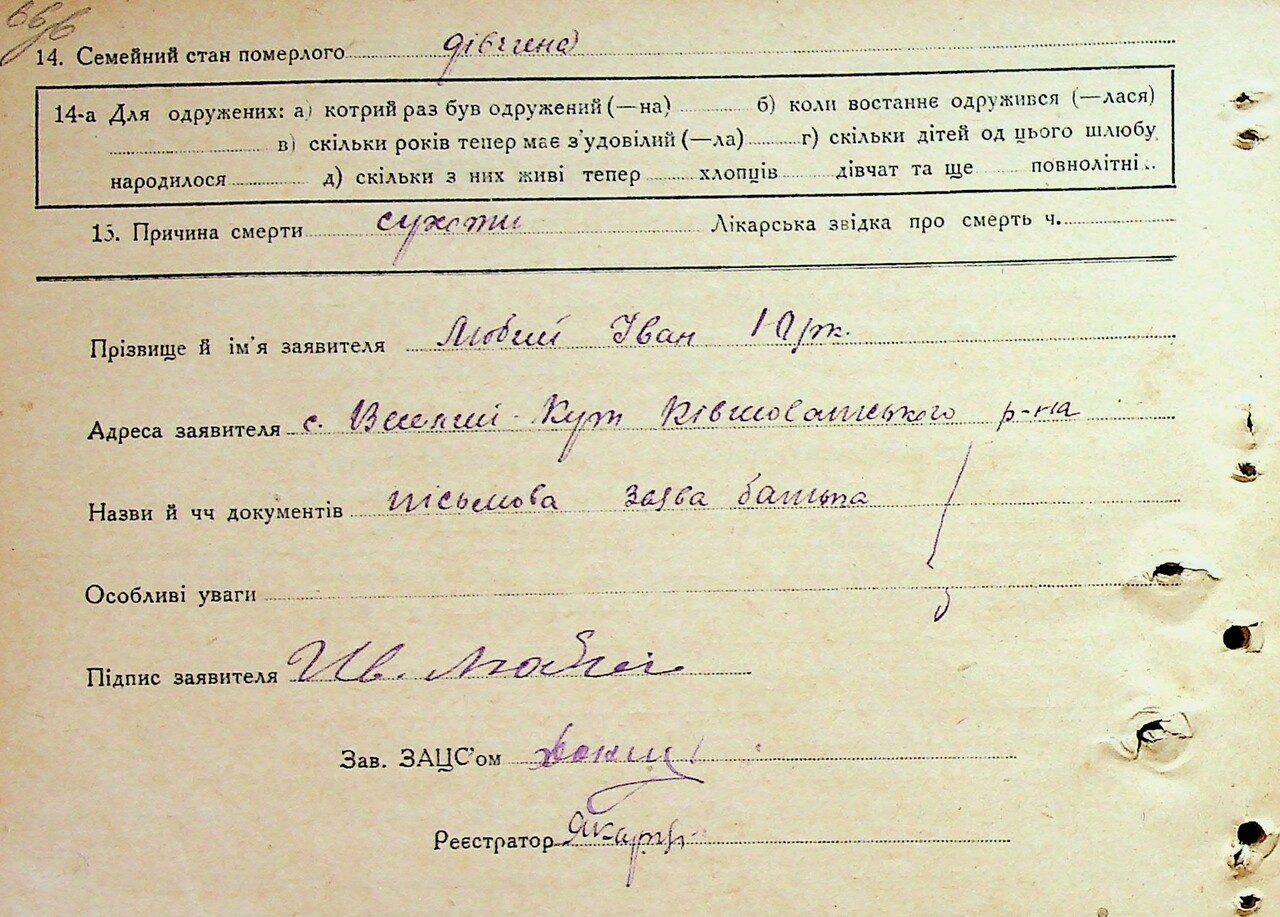 14. Семейний стан померлого дівчина
14-а Для одружених: а) котрий раз був одружений (—на) б) коли востаннє одружився (—лася)
в) скільки років тепер має з'удовілий (—ла) г) скільки дітей од цього шлюбу
народилося д) скільки з них живі тепер хлопців дівчат та ще повнолітні
15. Причина смерти сухоти Лікарська звідка про смерть ч.
Прізвище й ім'я заявителя Любий Іван
Адреса заявителя с. Великий-Кут Ківшоватського р-на
Назви й чч документів письмова заява батька
Особливі уваги
Підпис заявителя Ив. Любий
Зав. ЗАЦС'ом
Реєстратор